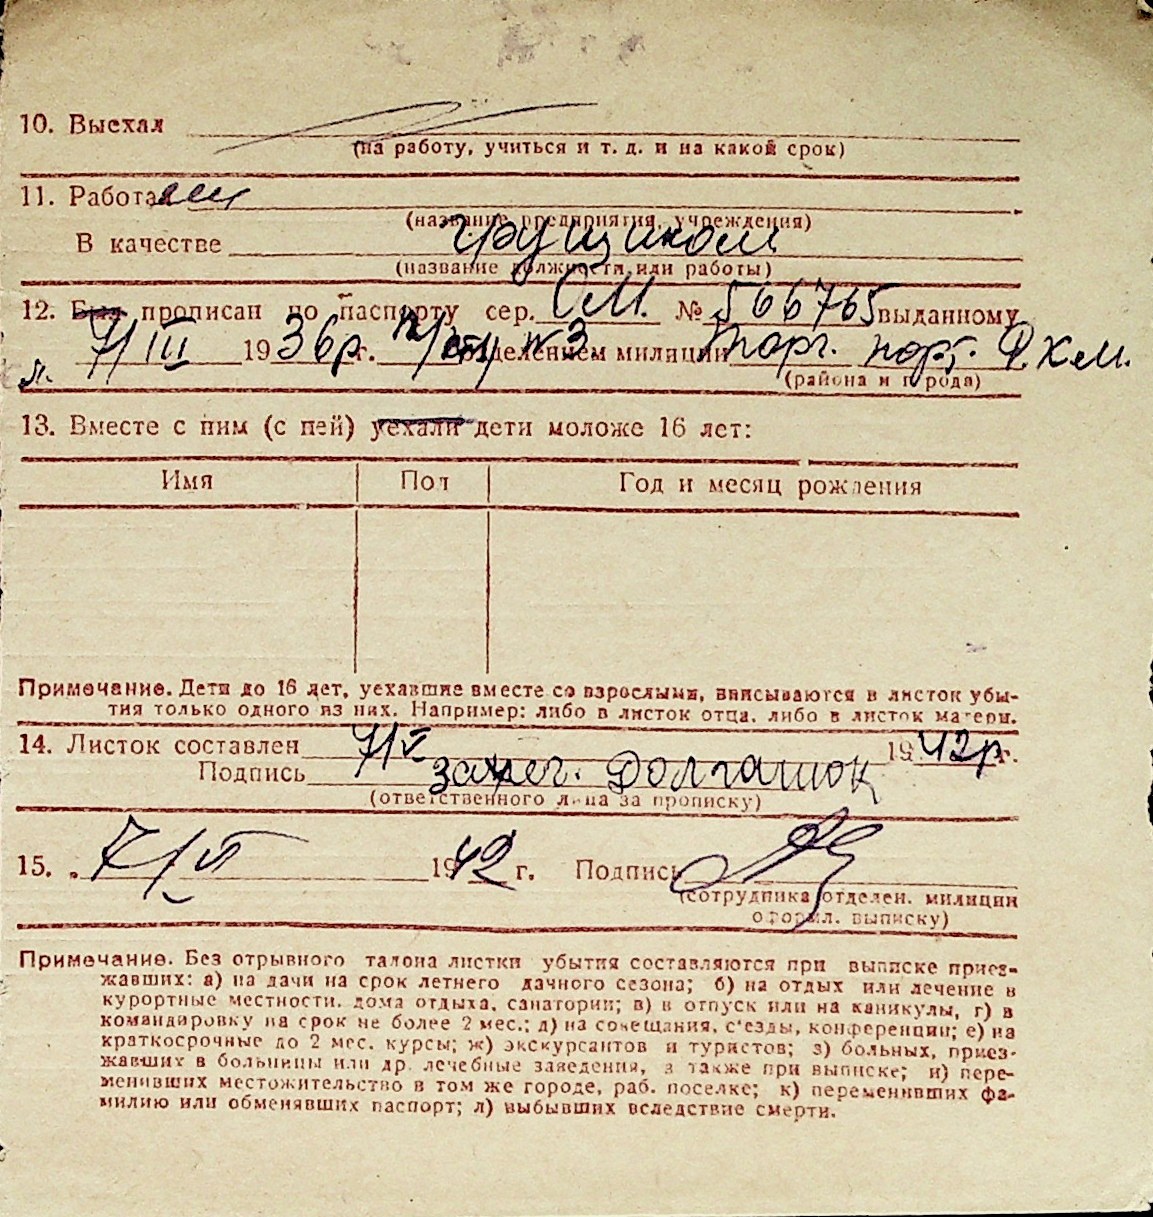 10. Выехал
(на работу, учиться и т. д. и на какой срок)
11. Работал
(название предприятия, учреждения)
В качестве грузчиком
(название должности или работы)
12. Был прописан по паспорту сер. СМ. № 566765 выданному
7/III 1936р. г. отделением милиции № 3 Торг. порт. Р.К.М.
(района и города)
13. Вместе с ним (с ней) уехали дети моложе 16 лет:
Имя Пол Год и месяц рождения
Примечание. Дети до 16 лет, уехавшие вместе со взрослыми, вписываются в листок убы-
тия только одного из них. Например: либо в листок отца, либо в листок матери.
14. Листок составлен 7/V 1942р. г.
Подпись Долгашюк
(ответственного лица за прописку)
15. 7/VI 1942 г. Подпись
(сотрудника отделен. милиции
оформл. выписку)
Примечание. Без отрывного талона листки убытия составляются при выписке приез-
жавших: а) на дачи на срок летнего дачного сезона; б) на отдых или лечение в
курортные местности, дома отдыха, санатории; в) в отпуск или на каникулы, г) в
командировку на срок не более 2 мес.; д) на совещания, с'езды, конференции; е) на
краткосрочные до 2 мес. курсы; ж) экскурсантов и туристов; з) больных, приез-
жавших в больницы или др. лечебные заведения, а также при выписке; и) пере-
менивших местожительство в том же городе, раб. поселке; к) переменивших фа-
милию или обменявших паспорт; л) выбывших вследствие смерти.